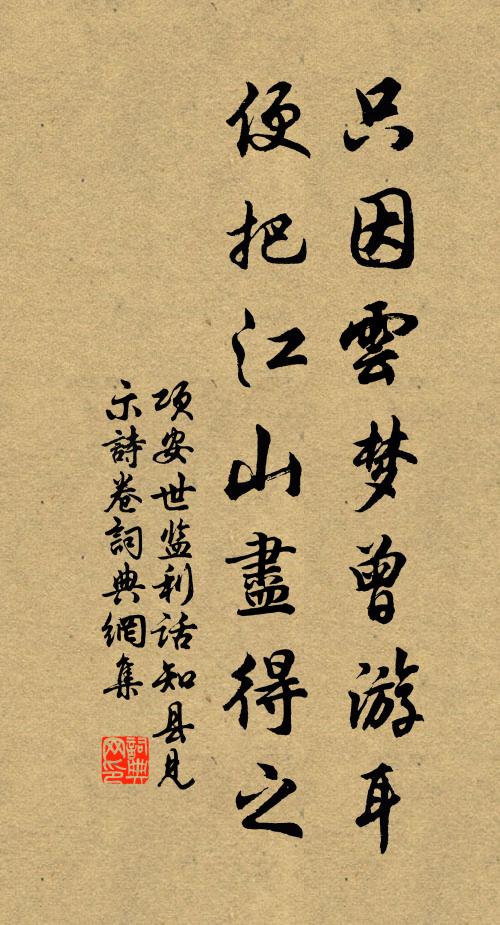 只因雲梦曾游耳
便把江山盡得之
项安世监利话知县见
示詩卷詞典網集
詞典
网印